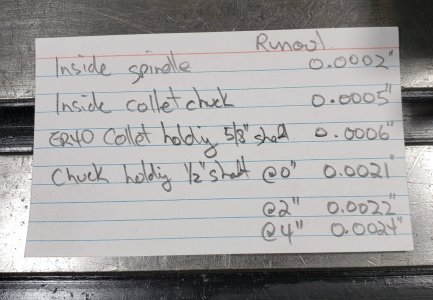 Runout
Inside spindle 0.0002"
Inside collet chuck 0.0005"
ER40 Collet holding 5/8" shaft 0.0006"
Chuck holding 1/2" shaft @0" 0.0021"
@2" 0.0022"
@4" 0.0024"